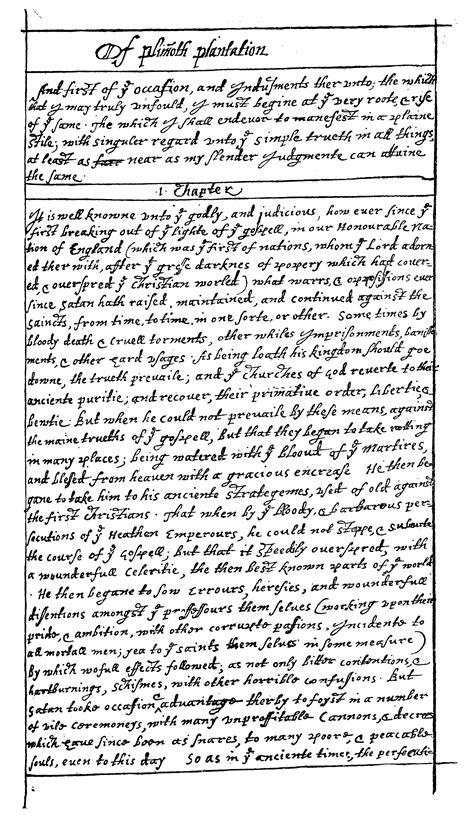 Of plim̃oth plantation
And first of yͤ occasion, and Indusments ther unto; the which
that I may truly unfould, I must begine at yͤ very roote, & rise
of yͤ same. The which I shall endevor to manefest in a plaine
stile; with singuler regard unto yͤ simple trueth in all things,
at least as near as my slender Judgmente can attaine
the same.
1 Chapter
It is well knowne unto yͤ godly, and judicious, how ever since yͤ
first breaking out of yͤ lighte of yͤ gospell, in our Honourable Na-
tion of England (which was yͤ first of nations, whom yͤ Lord adorn-
ed ther with, after yͤ grosse darknes of popery which had cover-
ed, & overspred yͤ Christian worled) what warrs, & oppossitions ever
since Satan hath raised, maintained, and continued against the
saincts, from time, to time, in one sorte, or other. Some times by
bloody death & cruell torments, other whiles Imprisonments, banish-
ments, & other hard usages. As being loath his kingdom should goe
downe, the trueth prevaile; and yͤ Churches of God reverte to their
anciente puritie; and recover, their primative order, libertie, &
bewtie. But when he could not prevaile by these means, against
the maine trueths of yͤ gospell, but that they began to take rotting
in many places; being watered with yͤ bloud of yͤ martires,
and blesed from heaven with a gracious encrease. He then be-
gane to take him to his anciente strategemes, used of old against
the first Christians. That when by yͤ bloody, & barbarous per-
secutions of yͤ Heathen Emperours, he could not stope, & subverte
the course of yͤ Gospell; but that it speedily overspred, with
a wounderfull celeritie, the then best known parts of yͤ world
. He then begane to sow Errours, heresies, and wounderfull
dissentions amongst yͤ professours them selves (working upon their
pride, & ambition, with other corrupte passions, Incidente to
all mortall men; yea to yͤ saints them selves in some measure)
By which wofull effects followed; as not only bitter contentions, &
hartburnings, schismes, with other horrible confusions. But
Satan tooke occasion, & advantage therby to foyst in a number
of vile ceremoneys, with many unproffitable Cannons, & decrees
which have since been as snares, to many poore, & peacable
souls, even to this day So as in yͤ anciente times, the persecuti-